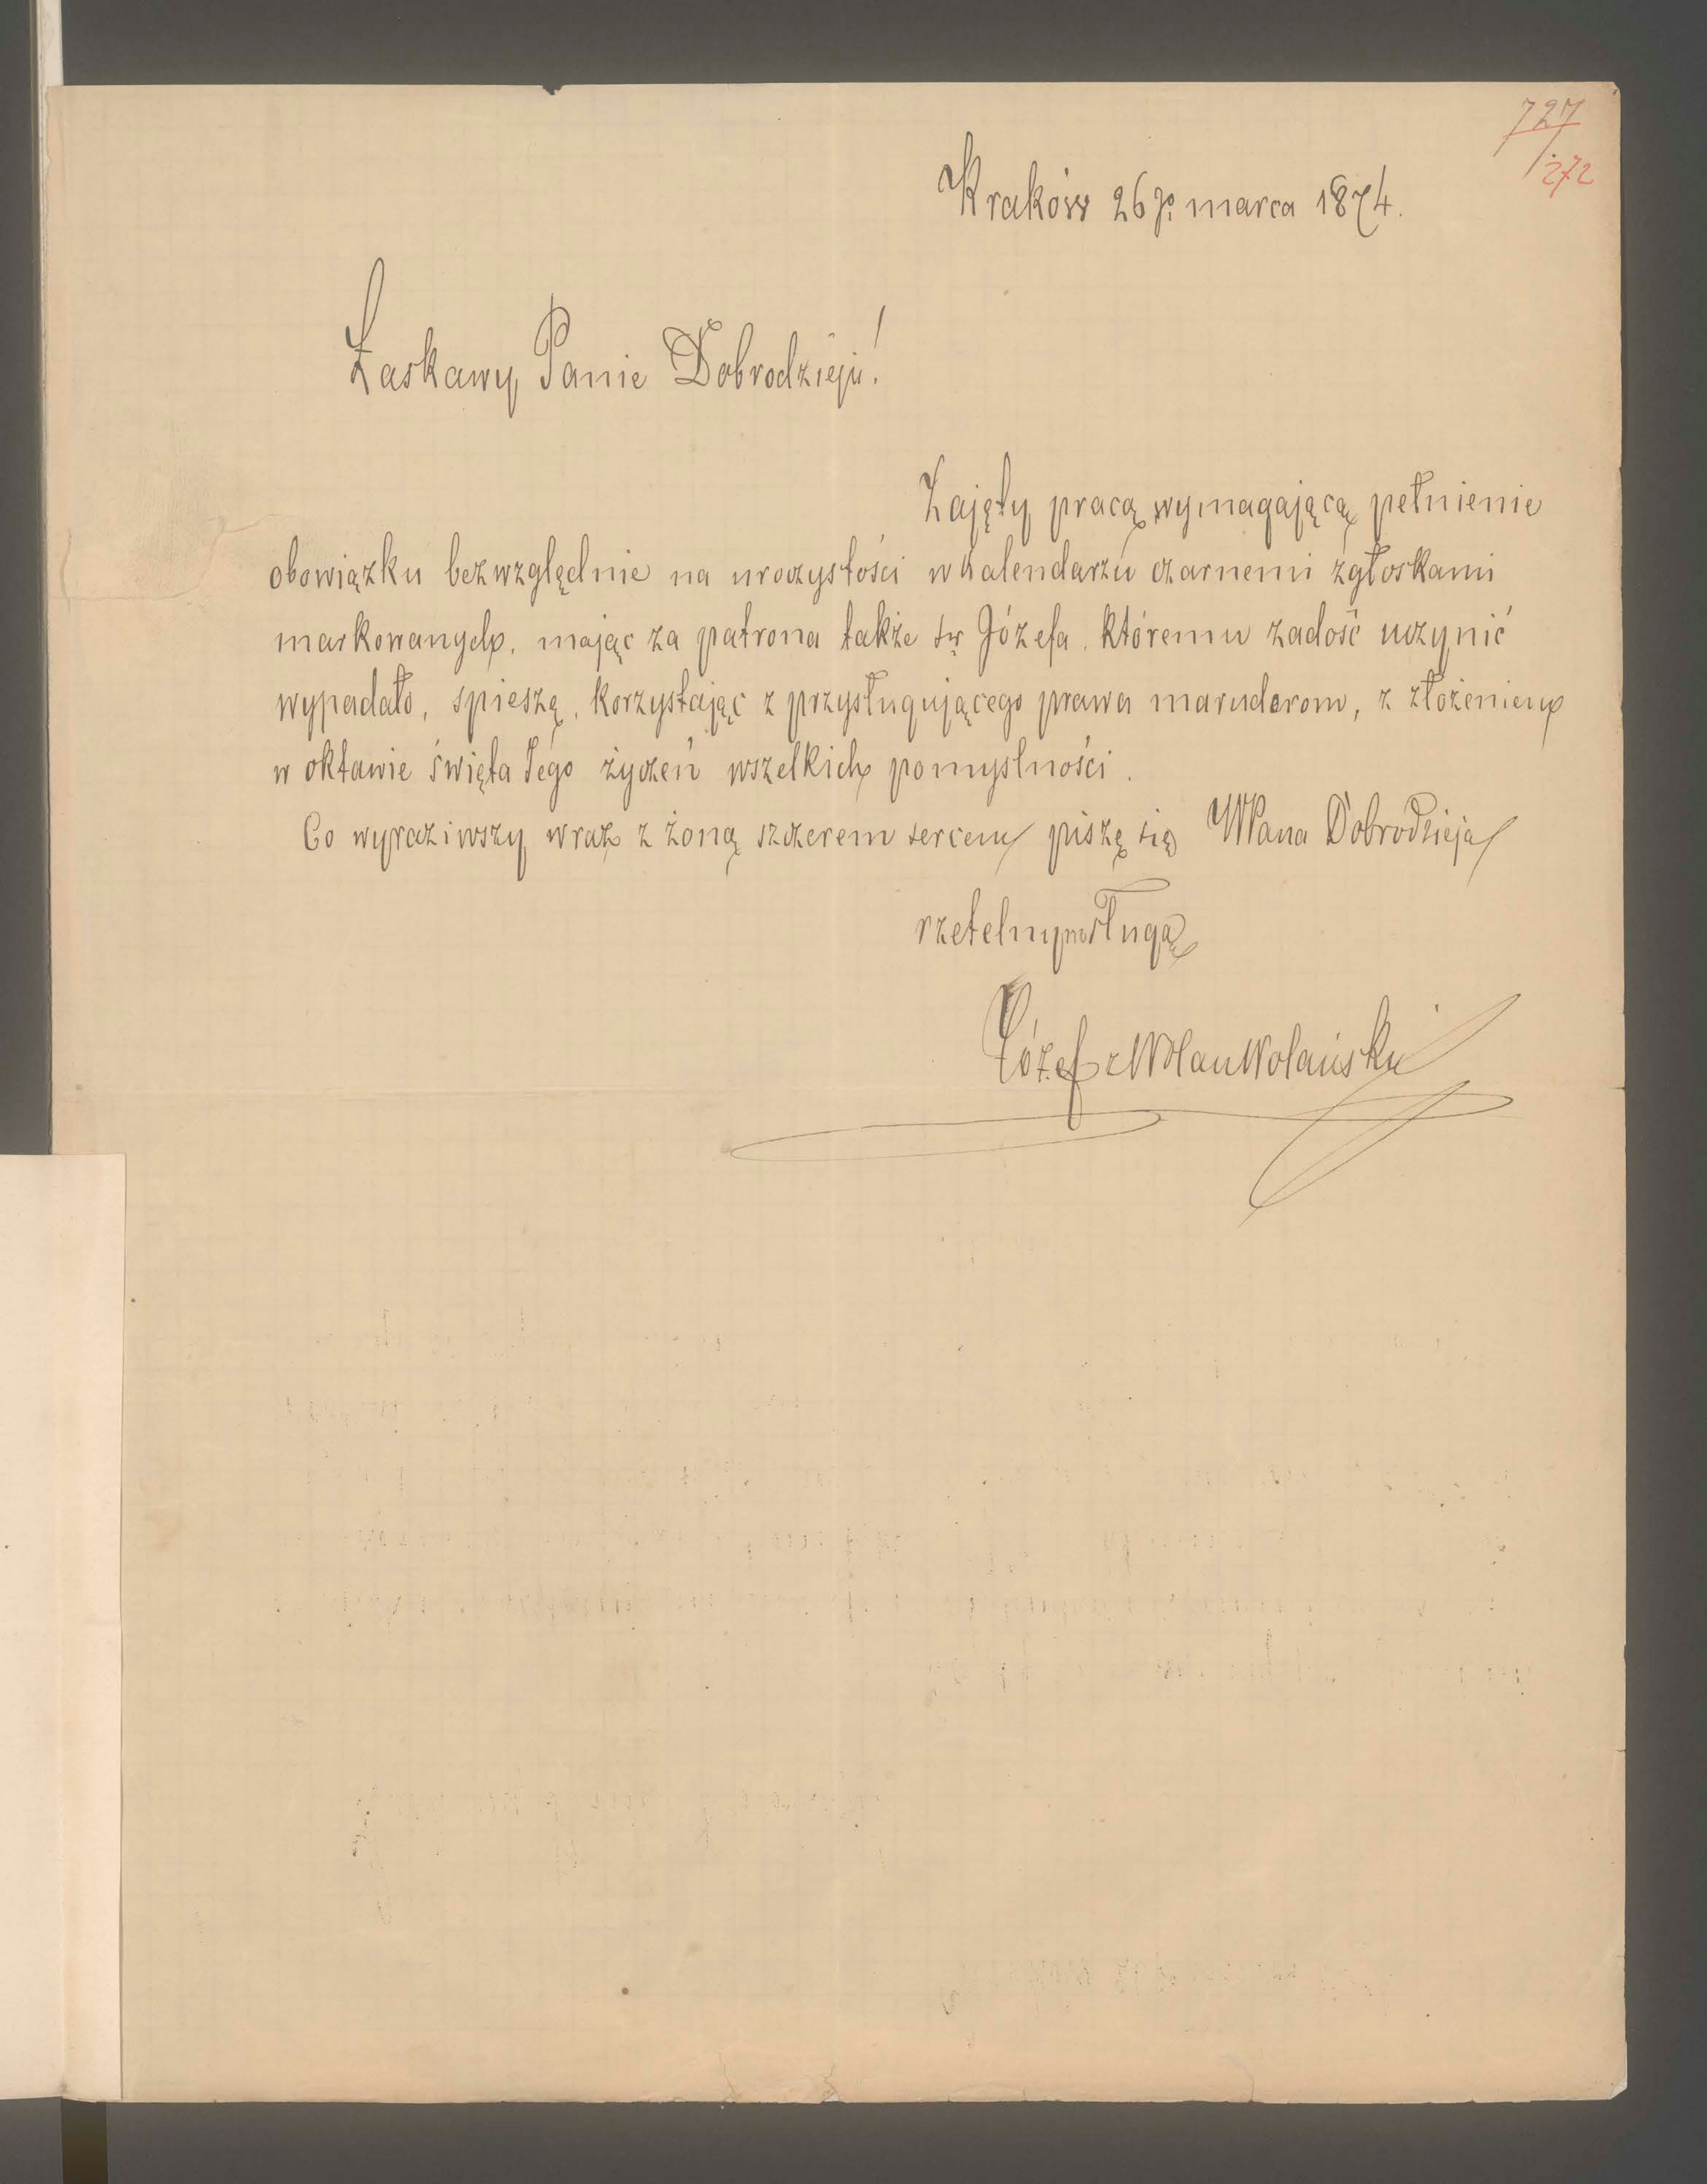 727
272
Kraków 26go marca 1874.
Łaskawy Panie Dobrodzieju!
Zajęty pracą wymagającą pełnienie
obowiązku bezwzględnie na uroczystości w kalendarzu czarnemi zgłoskami
markowanych, mając za patrona także św Józefa, któremu zadość uczynić
wypadało, spieszę, korzystając z przysługującego prawa maruderom, z złożeniem
w oktawie święta Tego życzeń wszelkich pomyslności.
Co wyraziwszy wraz z żoną szczerem sercem piszę się WPana Dobrodzieja
rzetelnym sługą
Józef z Wolan Wolański